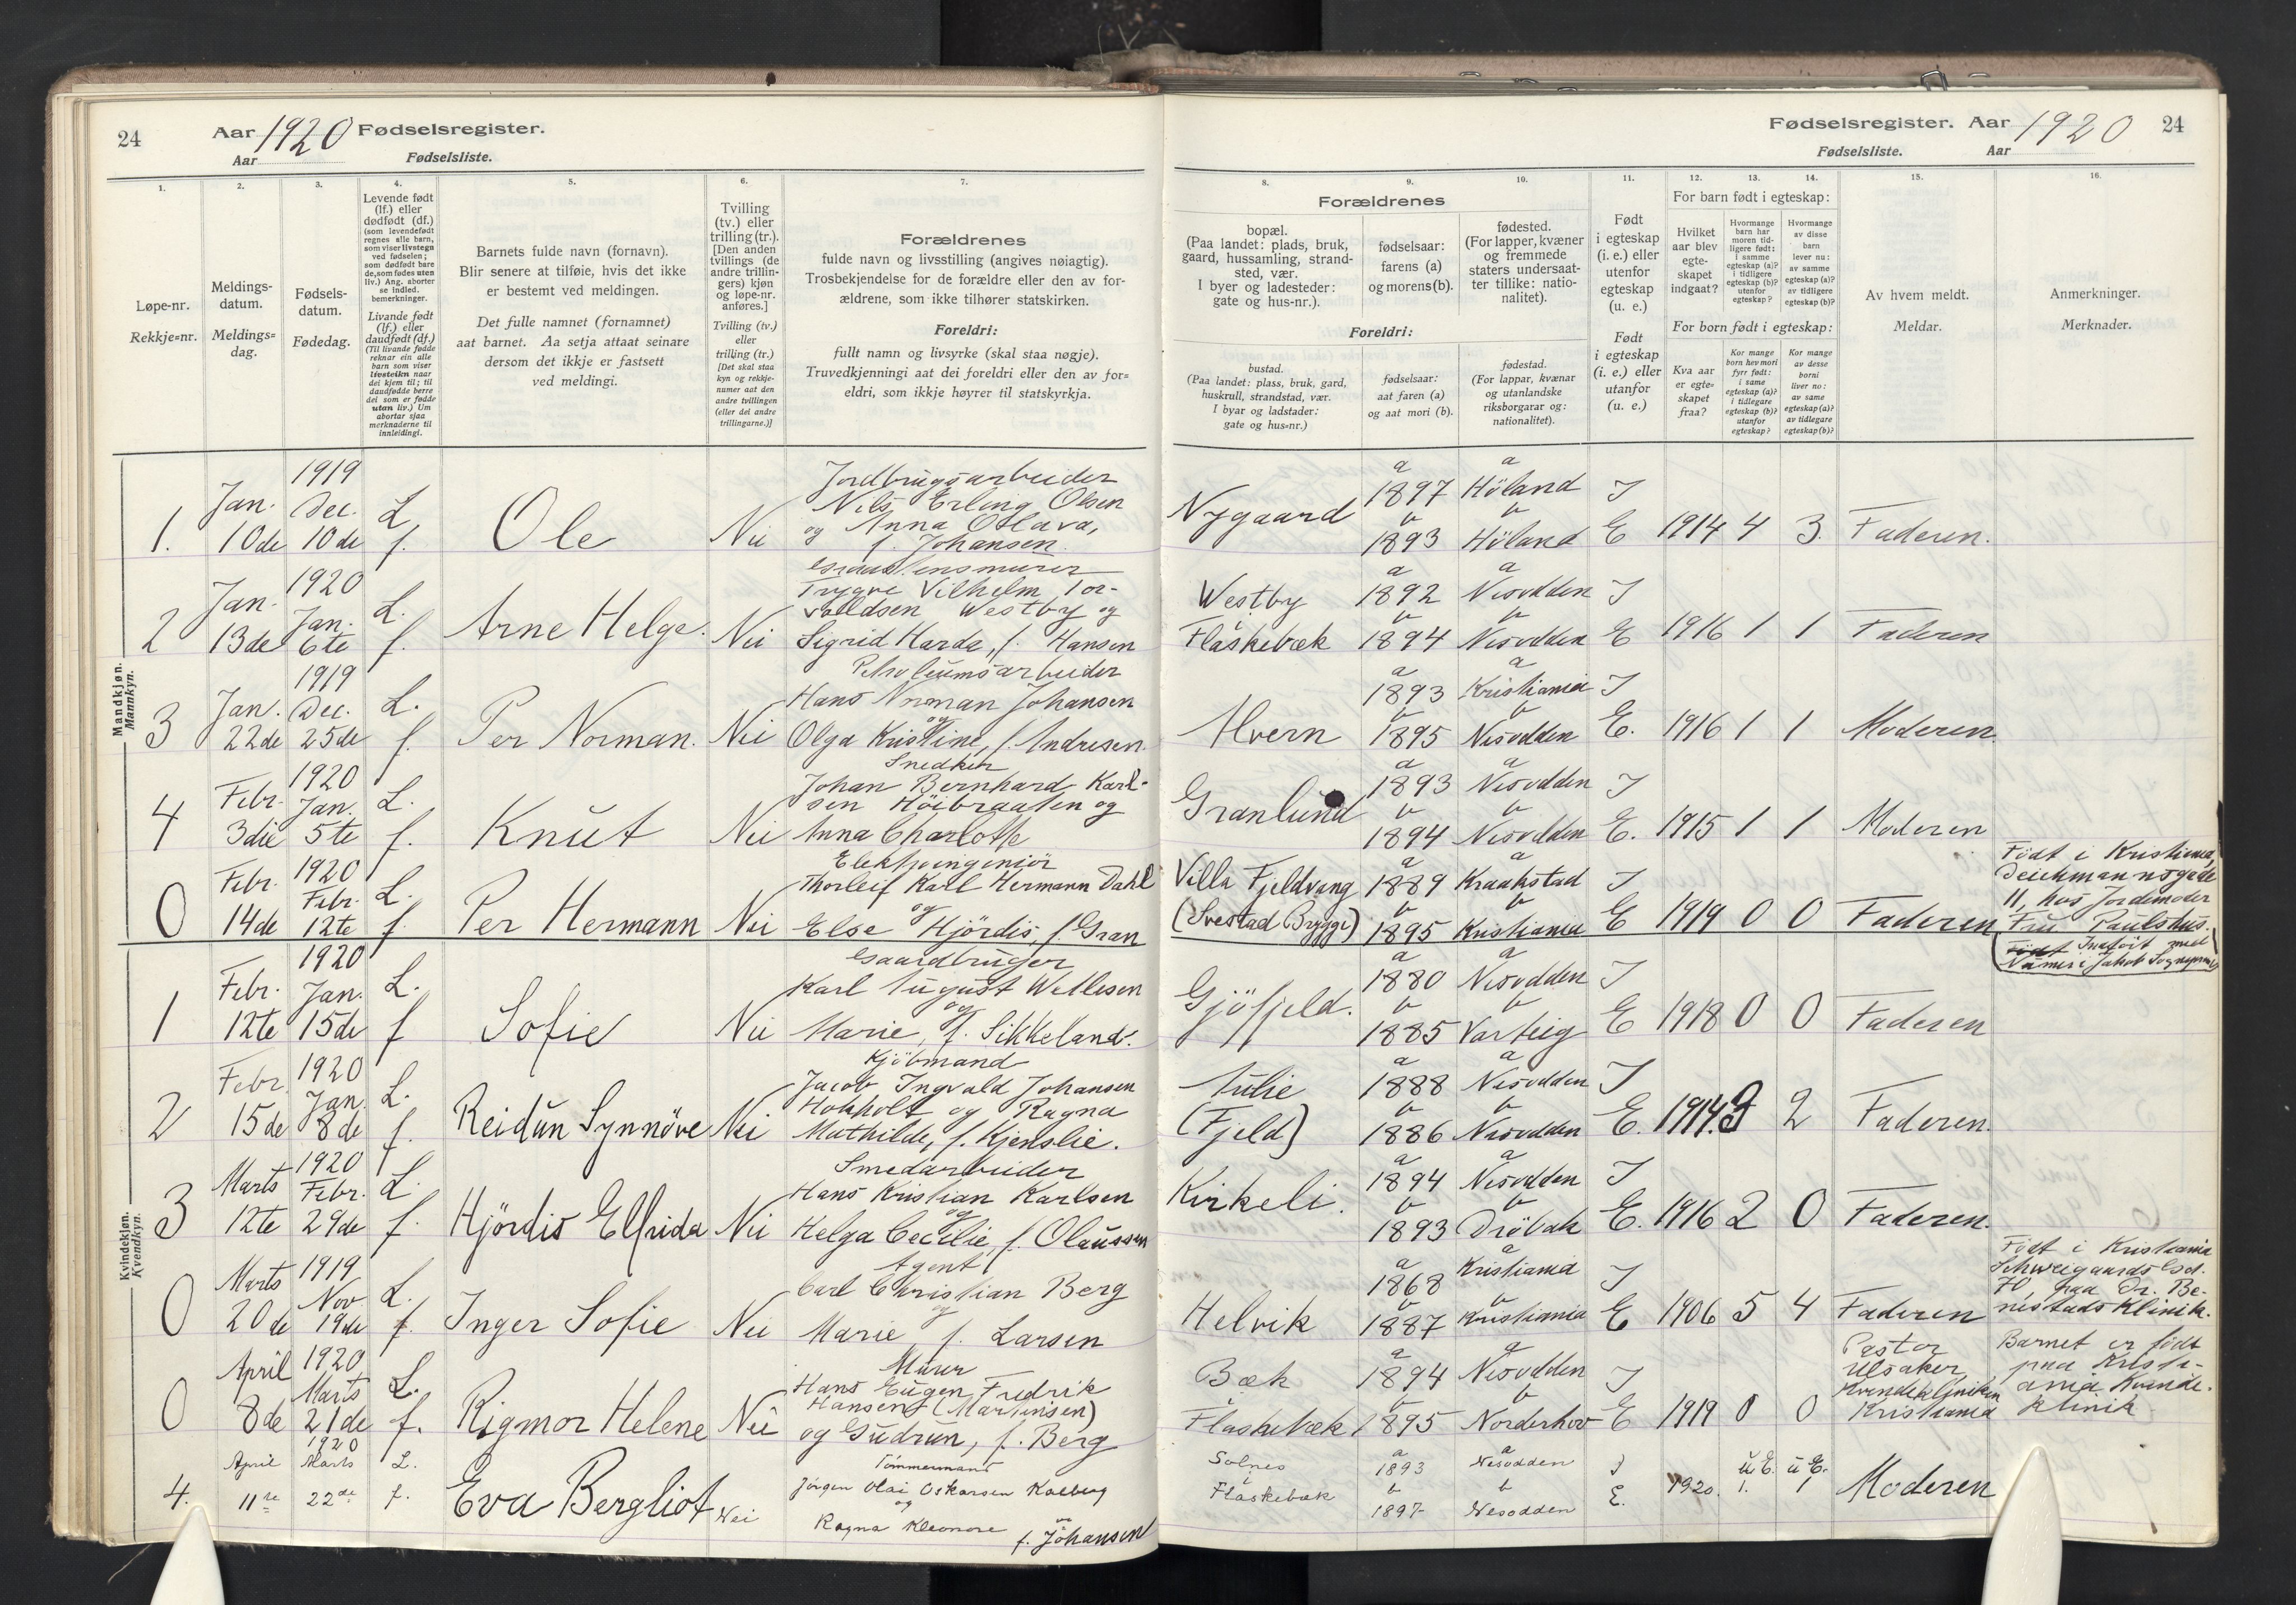 24
Aar 1920 Fødselsregister.
Aar
Fødselsliste.
Fødselsregister. Aar 1920
24
Fødselsliste.
Aar
1.
2.
3.
4.
5.
6.
7.
Løpe-nr.
Rekkje=nr.
Meldings-
datum.
Meldings=
dag.
Fødsels-
datum.
Fødedag.
Levende født
(lf.) eller
dødfødt (df.)
(som levendefødt
regnes alle barn,
som viser livstegn
ved fødselen;
som dødfødt bare
de, som fødes uten
liv.) Ang. aborter
se indled.
bemerkninger.
Livande født
(lf.) eller
daudfødt (df.)
(Til livande fødde
reknar ein alle
barn som viser
livsteikn naar
dei kjem til; til
daudfødde berre
dei som er fødde
utan liv.) Um
abortar sjaa
merknaderne til
innleidingi.
Barnets fulde navn (fornavn).
Blir senere at tilføie, hvis det ikke
er bestemt ved meldingen.
Det fulle namnet (fornamnet)
aat barnet. Aa setja attaat seinare
dersom det ikkje er fastsett
ved meldingi.
Tvilling
(tv.) eller
trilling (tr.).
[Den anden
tvillings (de
andre trillin-
gers) kjøn
og løpe-nr.
anføres.]
Tvilling (tv.)
eller
trilling (tr.)
[Det skal staa
kyn og rekkje-
numer aat den
andre tvillingen
(eller dei andre
trillingarne.)]
Forældrenes
fulde navn og livsstilling (angives nøiagtig).
Trosbekjendelse for de forældre eller den av for-
ældrene, som ikke tilhører statskirken.
Foreldri:
fullt namn og livsyrke (skal staa nøgje).
Truvedkjenningi aat dei foreldri eller den av for=
eldri, som ikkje høyrer til statskyrkja.
8.
9.
10.
11.
12.
13.
14.
15.
16.
Forældrenes
bopæl.
(Paa landet: plads, bruk,
gaard, hussamling, strand-
sted, vær.
I byer og ladesteder:
gate og hus-nr.).
fødselsaar:
farens (a)
og morens (b).
fødested.
(For lapper, kvæner
og fremmede
staters undersaat-
ter tillike: natio-
nalitet).
Foreldri:
bustad.
(Paa landet: plass, bruk, gard,
huskrull, strandstad, vær.
I byar og ladstader:
gate og hus=nr.)
fødselsaar:
aat faren (a)
og aat mori (b).
fødestad.
(For lappar, kvænar
og utanlandske
riksborgarar og:
nationalitet).
Født
i egteskap
(i. e.) eller
utenfor
egteskap
(u. e.)
Født
i egteskap
(i. e.) eller
utanfor
(u. e.)
For barn født i egteskap:
Hvilket
aar blev
egte-
skapet
indgaat?
Hvormange
barn har
moren tid-
ligere født:
i samme
egteskap (a)?
i tidligere
egteskap (b)?
utenfor
egteskap?
Hvormange
av disse
barn
lever nu:
av samme
egteskap (a)?
av tidligere
egteskap (b)?
For born født i egteskap:
Kva aar
er egte=
skapet
fraa?
Kor mange
born hev mori
fyrr født:
i same
egteskap (a)?
i tidlegare
egteskap (b)?
utanfor
egteskap?
Kor mange
av desse
borni
liver no:
av same
egteskap (a)?
av tidlegare
egteskap (b)?
Av hvem meldt.
Meldar.
Anmerkninger.
Merknader.
Mandkjøn.
Mannkyn.
1. Jan. 10de 1919 Dec. 10de L. f. Ole Nei
Jordbrugsarbeider
Nils Erling Olsen
og Anna Oslava,
f. Johansen.
Nygaard a 1897 b 1893 a Höland b Höland I E 1914 4 3. Faderen.
2 Jan. 13de 1920 Jan. 6te L. f. Arne Helge. Nei
Trygve Vilhelm Tor-
valdsen Westby og
Sigrid Harda, f. Hansen
Westby Flaskebæk a 1892 b 1894 a Nesodden b Nesodden I E 1916 1 1 Faderen
3 Jan. 22de 1919 Dec. 25de L. f. Per Norman. Nei
Petroleumsarbeider
Hans Norman Johansen
og
Olga Kristine, f. Andresen
Alvern a 1893 b 1895 a Kristiania b Nesodden I E. 1916 1 1 Moderen.
4 Febr. 3die 1920 Jan. 5te L. f. Knut Nei
Snedker
Johan Bernhard Karl-
sen Höibraaten og
Anna Charlotte
Granlund a 1893 b 1894 a Nesodden b Nesodden I E. 1915 1 1 Moderen
0 Febr. 14de 1920 Febr. 12te L. f. Per Hermann Nei
Elektroingeniör
Thorleif Karl Hermann Dahl
og
Else Hjördis, f. Gran
Villa Fjeldvang (Svestad Brygge) a 1889 b 1895 a Kraakstad b Kristiania I E 1919 0 0 Faderen
Født i Kristiania,
Deichmannsgade
11, hos Jordemoder
Fru Paulshus.
Kvindekjøn.
Kvendkyn.
1 Febr. 12te 1920 Jan. 15de L. f Sofie Nei
Gaardbruger
Karl August Wettesen
og
Marie, f. Sikkeland.
Gjöfjeld. a 1880 b 1885 a Nesodden b Varteig I E 1918 0 0 Faderen
2 Febr. 15de 1920 Jan. 8de L. f. Reidun Synnöve Nei
Kjöbmand
Jacob Ingvald Johansen
Hokholt og Ragna
Mathilde, f. Kjenslie.
Tulie (Fjeld) a 1888 b 1886 a Nesodden b Nesodden I E. 1914. 3 2 Faderen.
3 Marts 12te 1920 Febr. 29de L. f. Hjördis Elfrida Nei
Smedarbeider
Hans Kristian Karlsen
og
Helga Cecilie, f. Olaussen
Kirkeli. a 1894 b 1893 a Nesodden b Dröbak I E. 1916 2 0 Faderen.
0 Marts 20de 1919 Nov. 19de L. f. Inger Sofie Nei
Agent
Carl Christian Berg
og
Marie, f. Larsen
Helvik a 1868 b 1887 a Kristiania b Kristiania I E 1906 5 4 Faderen
Født i Kristiania
Schweigaards Gd.
70, paa Dr. Be-
nestads Klinik.
0 April 8de 1920 Marts 21de L. f. Rigmor Helene Nei
Murer
Hans Eugen Fredrik
Hansen (Martinsen)
og Gudrun, f. Berg
Bæk Flaskebæk a 1894 b 1895 a Nesodden b Norderhov I E 1919 0 0
Pastor
Ulsaker,
Kvindekliniken
Kristiania
Barnet er født
paa Kristi-
ania Kvinde-
klinik
4. April 11te 1920 Marts 22de L. f. Eva Bergliot Nei
Tömmermand
Jörgen Olai Oskarsen Kolberg
og
Ragna Kleonore f. Johansen
Solnes Flaskebæk a 1893 b 1897 a Nesodden b Nesodden I E. 1920. u.E. 1. u.E. 1 Moderen